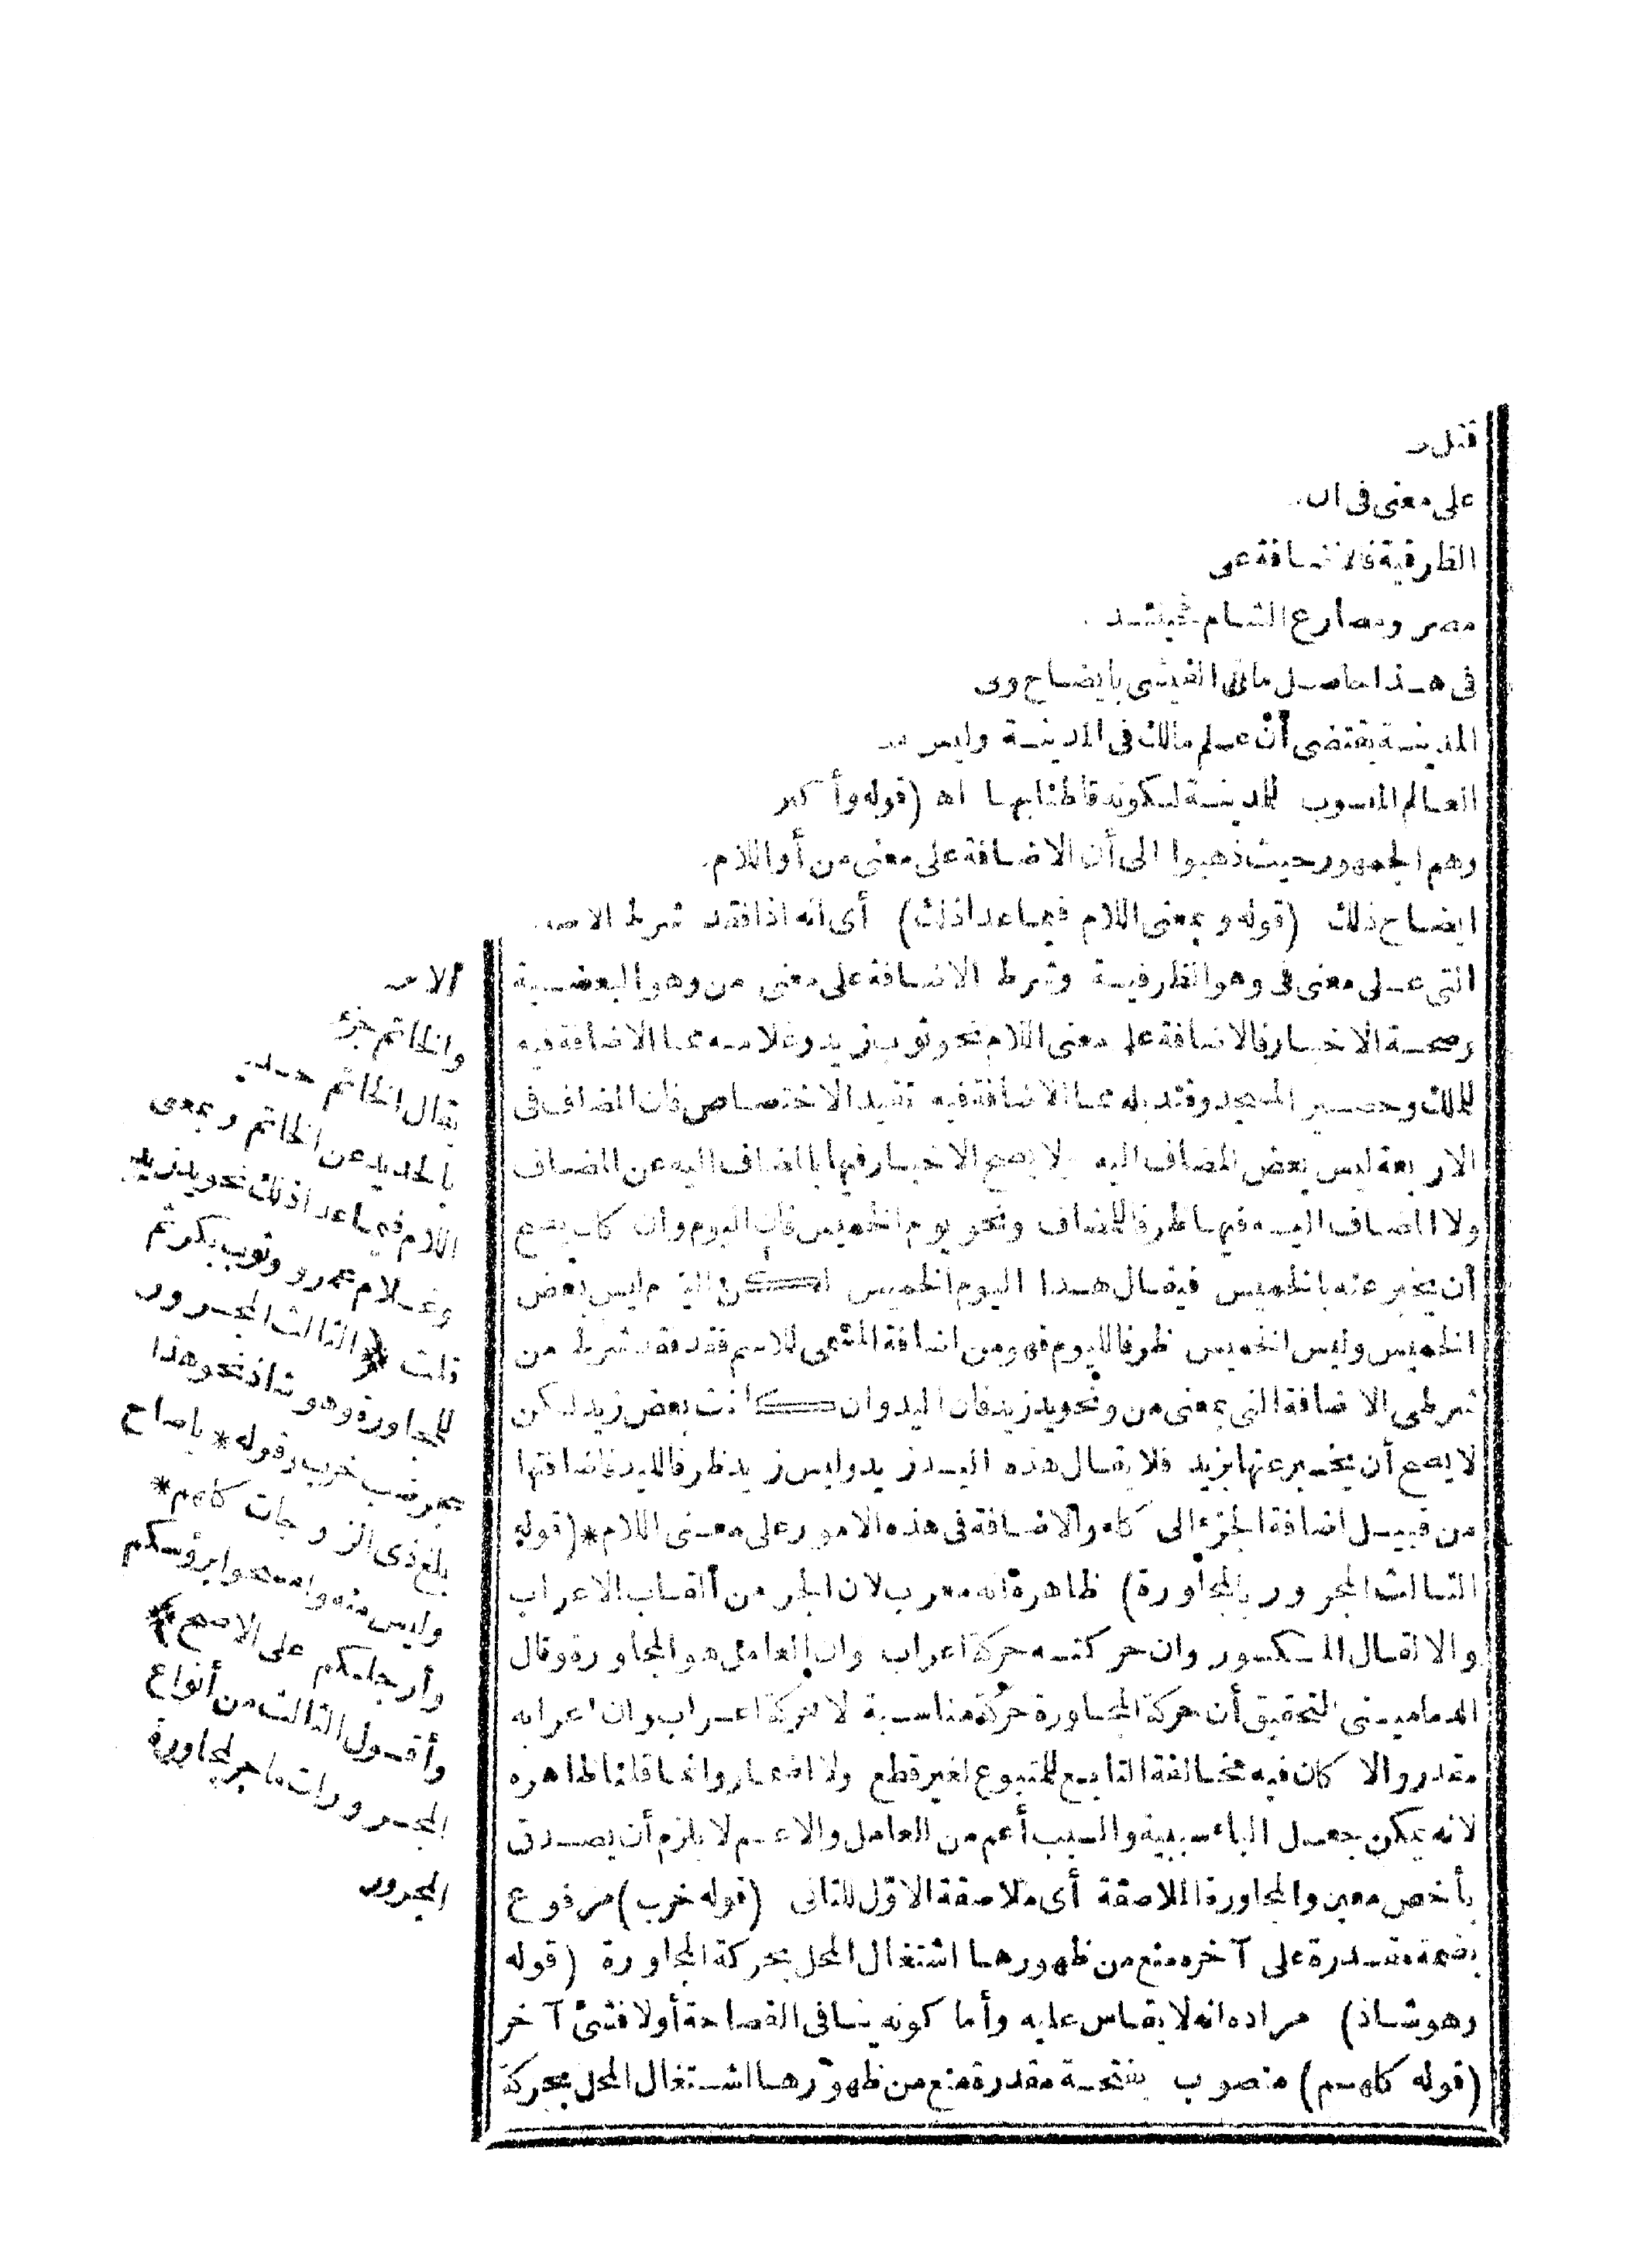 على معنى فى
الظرفية فالاضافة
مصر ومصارع الشام
فى هذا حاصل ما فى الفيشى بايضاح
المدينة يقتضى أن علم مالك فى المدينة وليس
العالم المنسوب للمدينة لكونه قاطنا بها اه (قوله وأكثر
وهم الجمهور حيث ذهبوا الى أن الاضافة على معنى من أو اللام
ايضاح ذلك (قوله وبمعنى اللام فيما عدا ذلك) أى انه اذا فقد شرط
التى على معنى فى وهو الظرفية وشرط الاضافة على معنى من وهو البعضية
وصحة الاخبار فالاضافة على معنى اللام نحو ثوب زيد وغلامه مما الاضافة فيه
للملك وحصير المسجد وقنديله مما الاضافة فيه تفيد الاختصاص فان المضاف فى
الاربعة ليس بعض المضاف اليه ولا يصح الاخبار فيها بالمضاف اليه عن المضاف
ولا المضاف اليه فيها ظرفا للمضاف ونحو يوم الخميس فان اليوم وان كان يصح
أن يخبر عنه بالخميس فيقال هذا اليوم الخميس لكن اليوم ليس بعض
الخميس وليس الخميس ظرفا لليوم فهو من اضافة المسمى للاسم فقد فقد شرط من
شرطى الاضافة التى بمعنى من ونحو يد زيد فان اليد وان كانت بعض زيد لكن
لا يصح أن يخبر عنها بزيد فلا يقال هذه اليد زيد وليس زيد ظرفا لليد فاضافتها
من قبيل اضافة الجزء الى كله والاضافة فى هذه الامور على معنى اللام * (قوله
الثالث المجرور بالمجاورة) ظاهره انه معرب لان الجر من ألقاب الاعراب
والا لقال المكسور وان حركته حركة اعراب وان العامل هو المجاورة وقال
الدمامينى التحقيق أن حركة المجاورة حركة مناسبة لا حركة اعراب وان اعرابه
مقدر والا كان فيه مخالفة التابع للمتبوع لغير قطع ولا اضمار وانما قلنا ظاهره
لانه يمكن جعل الباء سببية والسبب أعم من العامل والاعم لا يلزم أن يصدق
بأخص معين والمجاورة الملاصقة أى ملاصقة الاول للثانى (قوله خرب) مرفوع
بضمة مقدرة على آخره منع من ظهورها اشتغال المحل بحركة المجاورة (قوله
وهو شاذ) مراده انه لا يقاس عليه وأما كونه ينافى الفصاحة أولا فشئ آخر
(قوله كلهم) منصوب بفتحة مقدرة منع من ظهورها اشتغال المحل بحركة
والخاتم جزء
يقال الخاتم حديد
بالحديد عن الخاتم وبمعنى
اللام فيما عدا ذلك نحو يد زيد
وغلام عمرو وثوب بكر ثم
قلت * (الثالث المجرور
للمجاورة وهو شاذ نحو هذا
جحر ضب خرب وقوله * يا صاح
بلغ ذوى الزوجات كلهم *
وليس منه وامسحوا برؤسكم
وأرجلكم على الاصح) *
وأقول الثالث من أنواع
المجرورات ما جر لمجاورة
المجرور